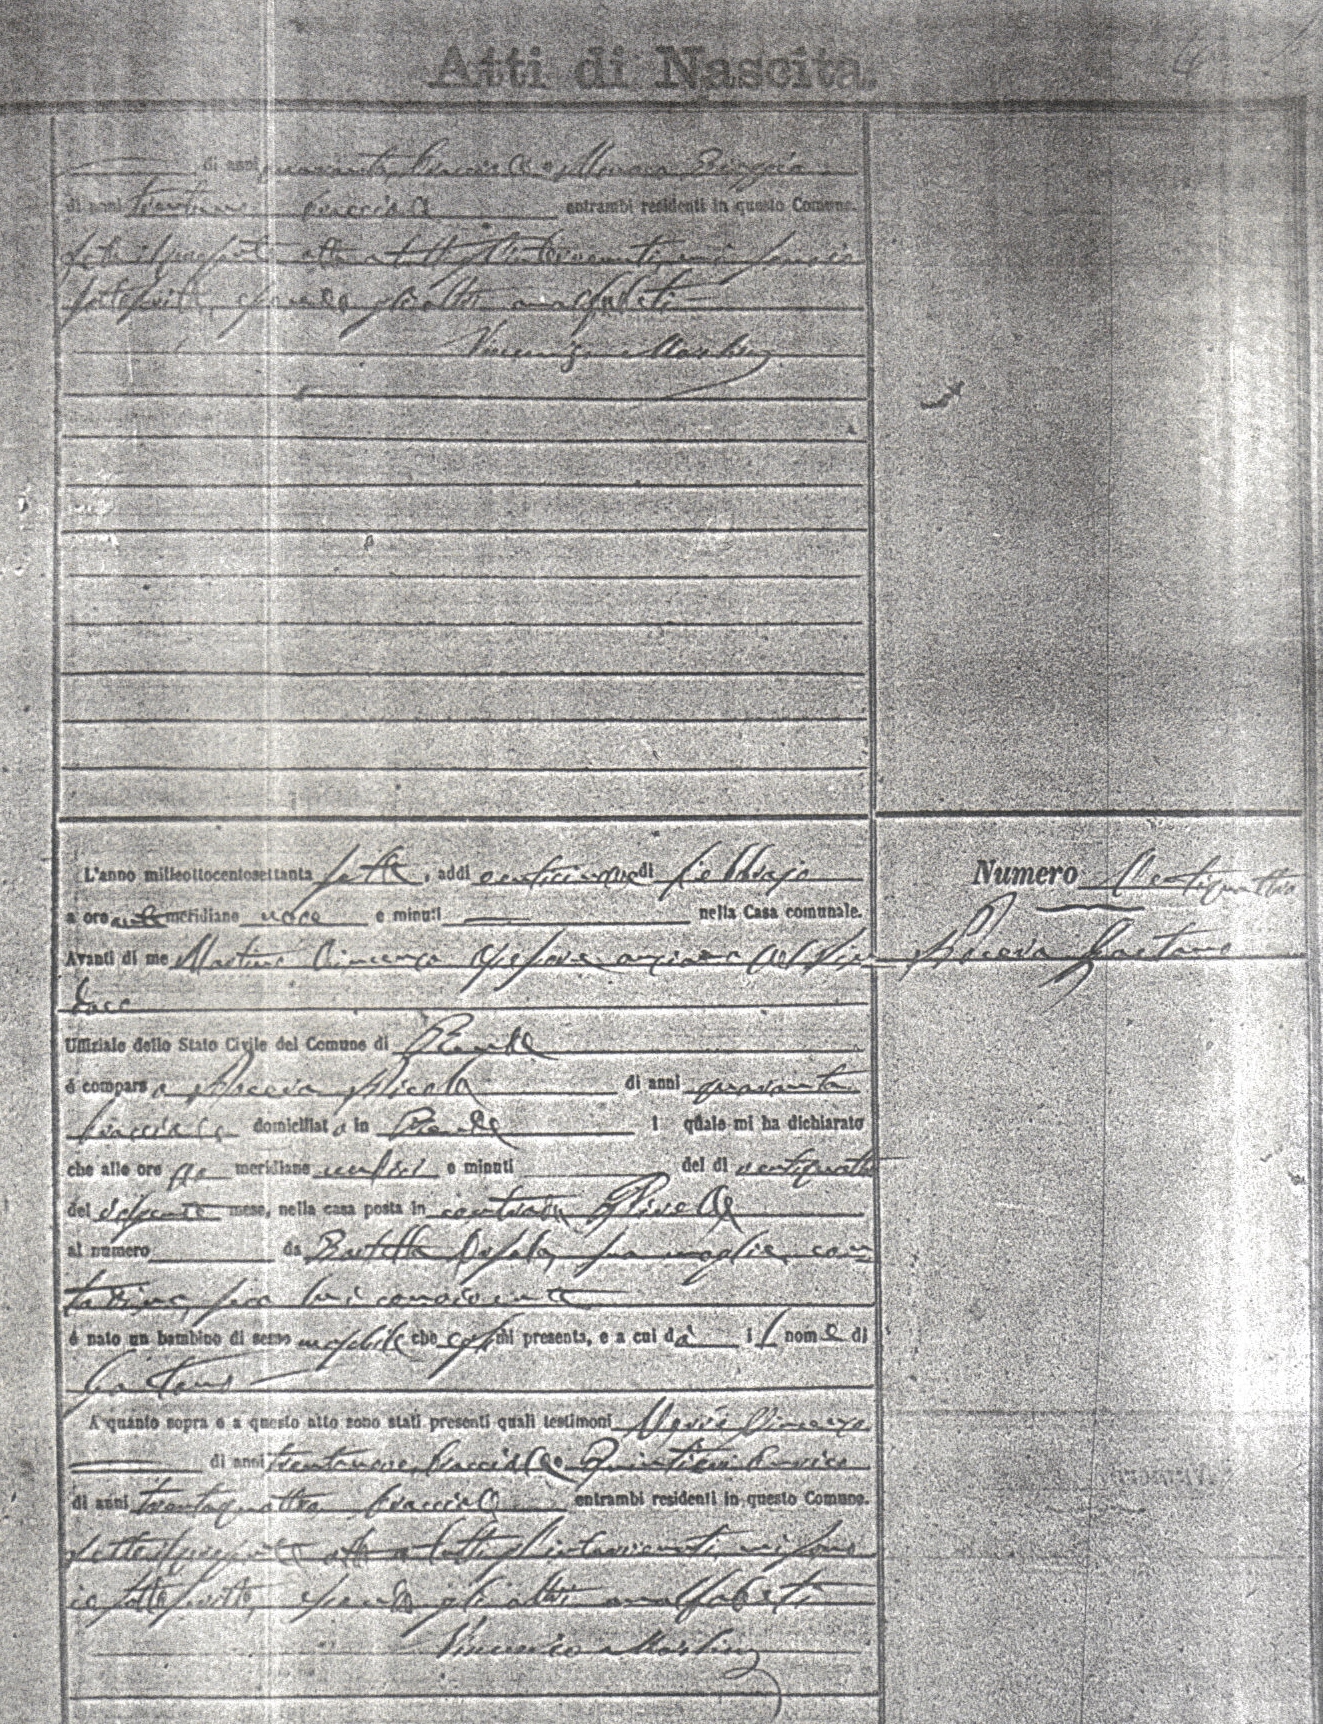 Atti di Nascita.
di anni quaranta, bracciale e
di anni trentuno bracciale entrambi residenti in questo Comune.
Letto il presente atto a tutti gl'intervenuti, mi sono io
sottoscritto, essendo gli altri analfabeti
Vincenzo Martino
L'anno milleottocentosettanta sette, addi venticinque di Febbrajo
a ore ante meridiane nove e minuti nella Casa comunale.
Numero Ventiquattro
Avanti di me Martino Vincenzo Assessore anziano del Sin
Gaetano
daco
Uffiziale dello Stato Civile del Comune di Rende
è comparso Nicola di anni quaranta
bracciale domiciliato in Rende i quale mi ha dichiarato
che alle ore po meridiane undici e minuti del di ventiquattro
del volgente mese, nella casa posta in contrada
al numero da sua moglie, con
tadina, seco lui convivente
è nato un bambino di sesso maschile che esso mi presenta, e a cui dà il nome di
Gaetano
A quanto sopra e a questo atto sono stati presenti quali testimoni Vincenzo
di anni trentanove, bracciale e
di anni trentaquattro, bracciale entrambi residenti in questo Comune.
Letto il presente atto a tutti gl'intervenuti, mi sono
io sottoscritto, essendo gli altri analfabeti
Vincenzo Martino